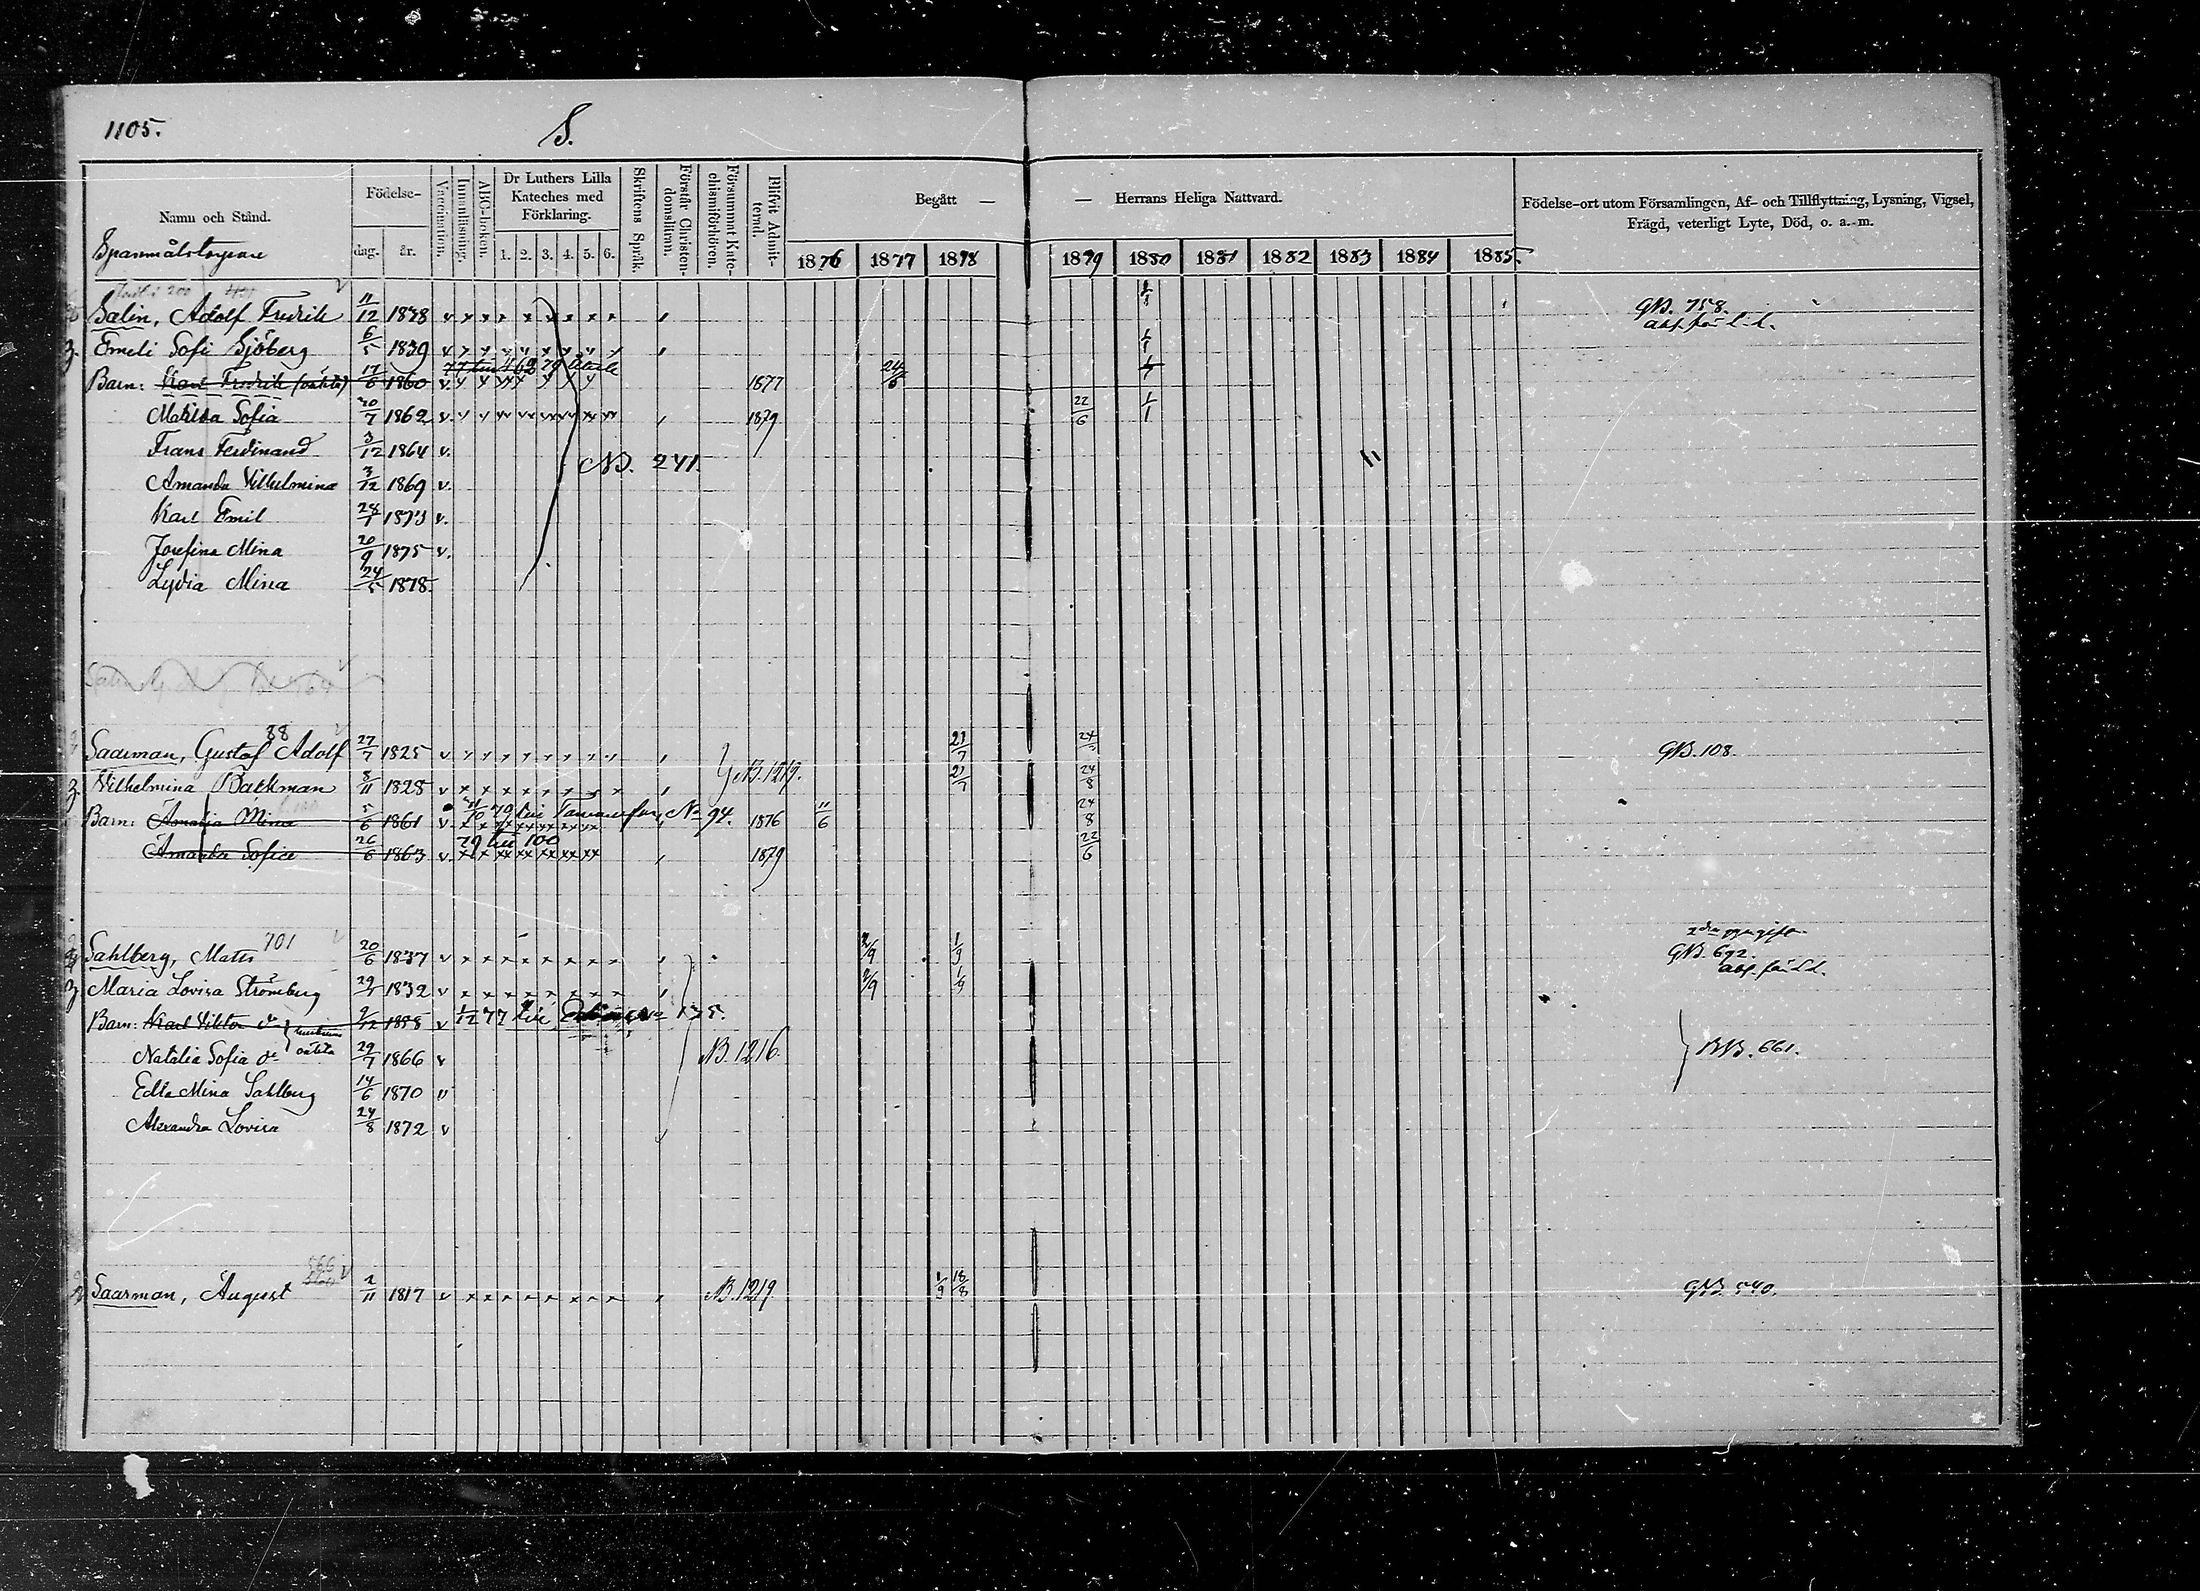 1105.
S.
Namn och Stånd.
Födelse-
dag. år.
Vaccination.
Innanläsning.
ABC-boken.
Dr Luthers Lilla Kateches med Förklaring.
1. 2. 3. 4. 5. 6.
Skriftens Språk.
Förstår Christendomsläran.
Försummat Katechismiförhören.
Blifvit Admitterad.
Begått — — Herrans Heliga Nattvard.
1876 1877 1878 1879 1880 1881 1882 1883 1884 1885.
Födelse-ort utom Församlingen, Af- och Tillflyttning, Lysning, Vigsel,
Frägd, veterligt Lyte, Död, o. a. m.
Salin, Adolf Fredrik 11/12 1838 v x x x x x x x x GB. 758.
Emeli Sofi Sjöberg 6/5 1839 v 1/1
Barn: Karl Fredrik 17/6 1860 v 1877 24/6
Matilda Sofia 20/7 1862 v 1879 22/6 1/1
Frans Ferdinand 3/12 1864 v.
NB. 241.
Amanda Vilhelmina 3/12 1869 v.
Karl Emil 28/1 1873 v.
Josefina Mina 20/9 1875 v.
Lydia Mina 24/5 1878
88
Saarman, Gustaf Adolf 27/7 1825 v 21/7 24/8 GB. 108.
Vilhelmina Backman 8/11 1828 v NB. 1219. 21/7 24/8
Barn: Amalia Mina 5/6 1861 v No 94. 1876 11/6 24/8
79 till 100
Amanda Sofia 26/6 1863 v 1879 22/6
701
Sahlberg, Matts 20/6 1837 v x x x x x x x x 2/9 1/9 GB. 692.
Maria Lovisa Strömberg 1832 v 2/9 1/9
Barn: Karl Viktor 1858 v 1/12 77 till 135.
Natalia Sofia 29/7 1866 v NB. 1216. BB. 661.
Edla Mina Sahlberg 14/6 1870 v
Alexandra Lovisa 24/8 1872 v
566
Saarman, August 2/11 1817 v x x x x x x x x NB. 1219. 1/9 18/8 GB. 540.